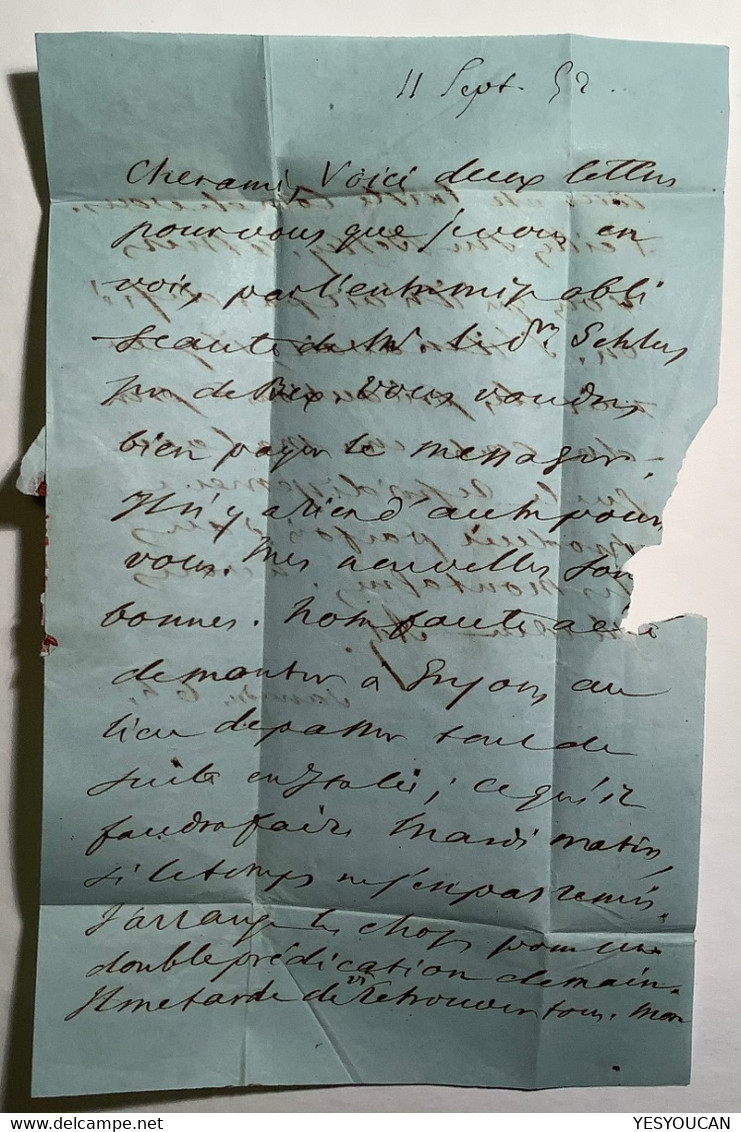 11 Sept. 52.
Cher ami, Voici deux lettres
pour vous que je vous en
voie, par l'entremise obli
geante de Mr. le dr Schlus
de Bex. Vous voudrez
bien payer le messager.
Il n'y a rien d'autre pour
vous. Mes nouvelles son
bonnes. Nom
de monter à au
lieu de passer tout de
suite en Italie; ce qu'il
faudra faire Mardi matin,
si le temps
J'arrange les choses pour une
double prédication demain.
Il me tarde de vs retrouver tous. Mon
YESYOUCAN